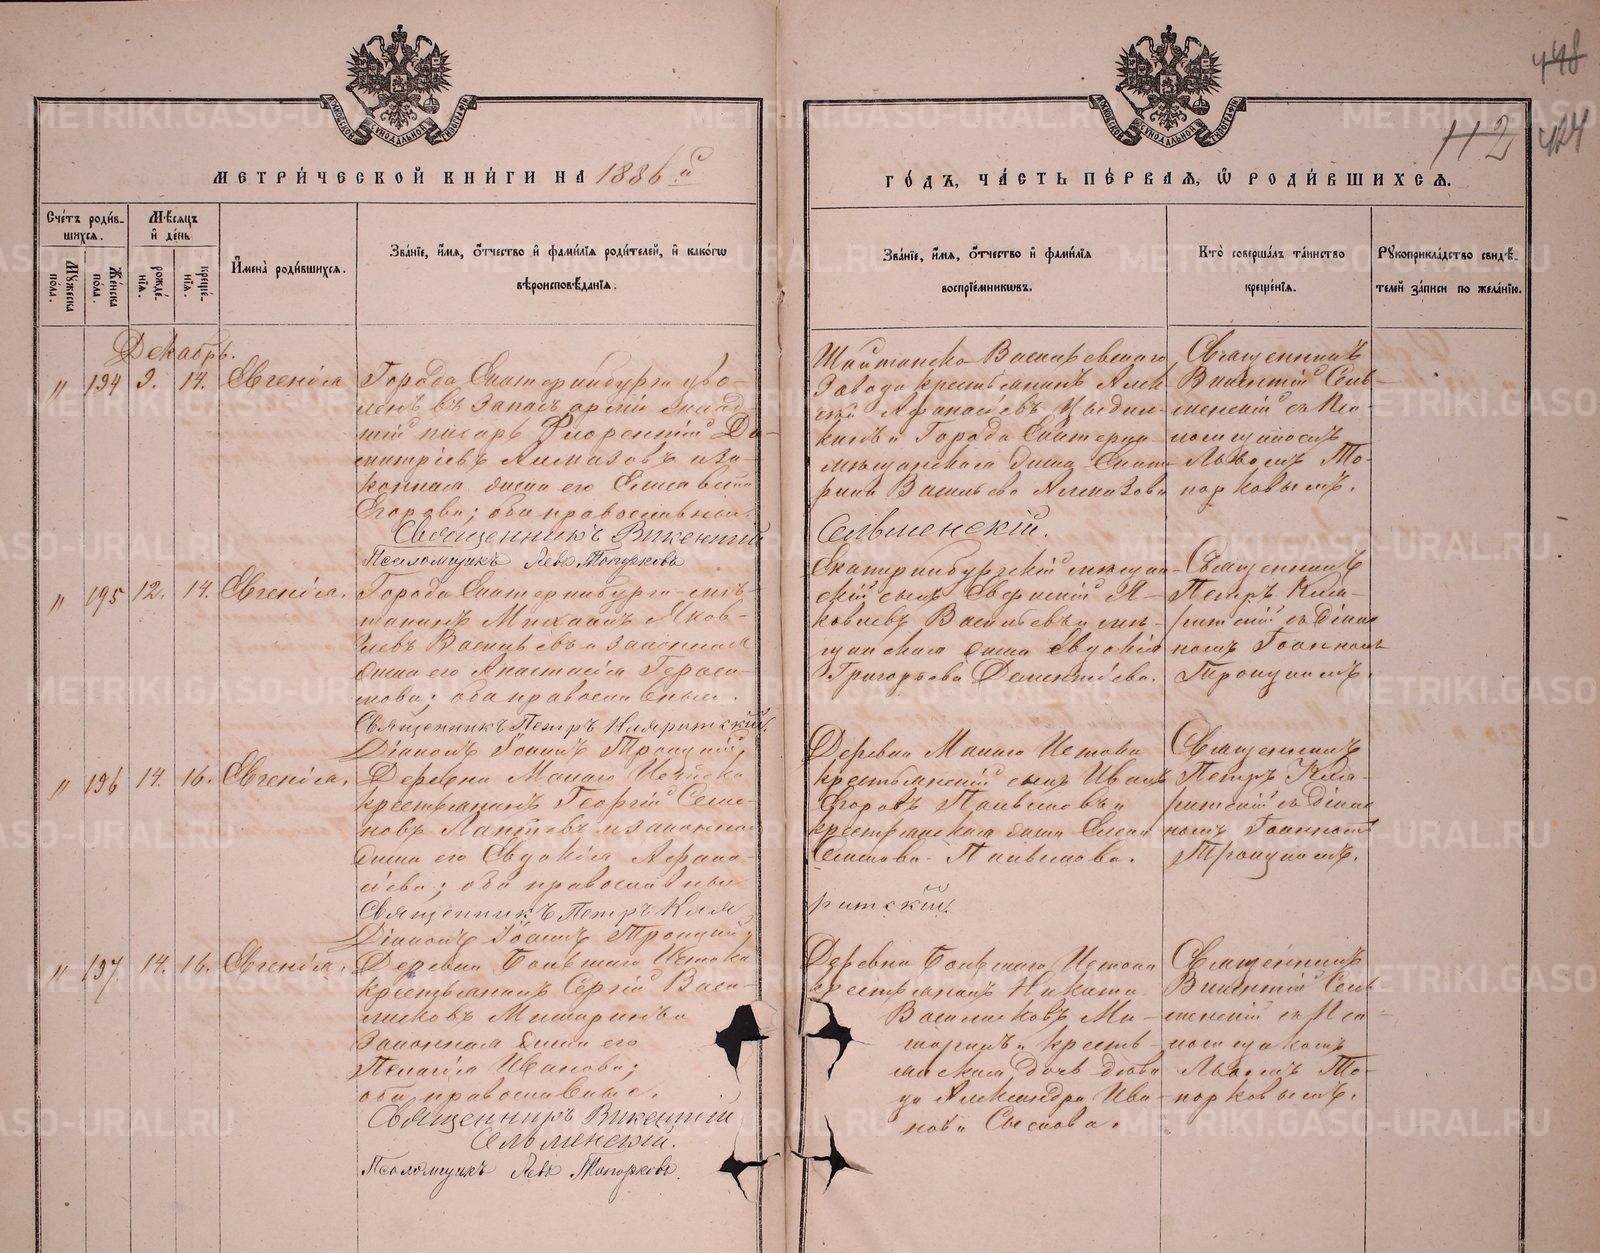 448
112 424
МЕТРИ́ЧЕСКОЙ КНИ́ГИ НА 1886й
ГО́ДЪ, ЧА́СТЬ ПЕ́РВАЯ, Ѽ РОДИ́ВШИХСЯ.
Сче́тъ роди́в-
шихся.
Мꙋжеска по́ла.
Же́нска по́ла.
Мѣ́сяцъ и҆ де́нь
рожде́нїя.
креще́нїя.
И҆мена̀ роди́вшихся.
Зва́нїе, и҆́мя, ѻ҆́тчество и҆ фами́лїя роди́телей, и҆ како́гѡ
вѣроисповѣ́данїя.
Зва́нїе, и҆́мя, ѻ҆́тчество и҆ фами́лїя
воспрїе́мникѡвъ.
Кто̀ соверша́лъ та́инство
креще́нїя.
Рꙋкоприкла́дство свидѣ́-
телей за́писи по жела́нїю.
Декабрь.
" 194 9. 14. Евгенія
Города Екатеринбурга уво-
ленъ въ запасъ арміи
писарь Флорентій Ди-
митріевъ Алмазовъ и за-
конная жена его Елисавета
Егорова; оба православные.
Священникъ Викентій
Псаломщикъ Левъ Топорковъ
Шайтанско Васильевскаго
Завода крестьянинъ Алек-
сѣй Афанасіевъ
и Города Екатеринб.
мѣщанская жена Екате-
рина Васильева Алмазова
Сельменскій.
Священникъ
Викентій Сель-
менскій съ Пса-
ломщикомъ
Львомъ То-
порковымъ.
" 195 12. 14. Евгенія.
Города Екатеринбурга мѣ-
щанинъ Михаилъ Яков-
левъ Васильевъ и законная
жена его Анастасія Гераси-
мова; оба православные.
Священникъ Петръ Кляритскій
Діаконъ Іоаннъ Троицкій
Екатеринбургскій мѣщан-
скій сынъ Я-
ковлевъ Васильевъ и мѣ-
щанская жена Евдокія
Григорьева Дементьева.
Священникъ
Петръ Кля-
ритскій съ Діако-
номъ Іоанномъ
Троицкимъ.
" 196 14. 16. Евгенія.
Деревни Малаго Истока
крестьянинъ Георгій Семе-
новъ Лаптевъ и законная
жена его Евдокія Афана-
сіева; оба православные
Священникъ Петръ Кля
Діаконъ Іоаннъ Троицкій
Деревни Малаго Истока
крестьянскій сынъ Иванъ
Егоровъ и
крестьянская жена
ритскій.
Священникъ
Петръ Кля-
ритскій съ Діако-
номъ Іоанномъ
Троицкимъ.
" 197. 14. 16. Евгенія.
Деревни Большаго Истока
крестьянинъ Сергій Васи-
лисковъ Мишаринъ и
законная жена его
Пелагія Иванова;
оба православные.
Священникъ Викентій
Сельменскій.
Псаломщикъ Левъ Топорковъ.
Деревни Большаго Истока
крестьянинъ Никита
Василисковъ Ми-
шаринъ и кресть-
янская дочь дѣви-
ца Александра Ива-
нова
Священникъ
Викентій Сель-
менскій съ Пса-
ломщикомъ
Львомъ То-
порковымъ.
METRIKI.GASO-URAL.RU